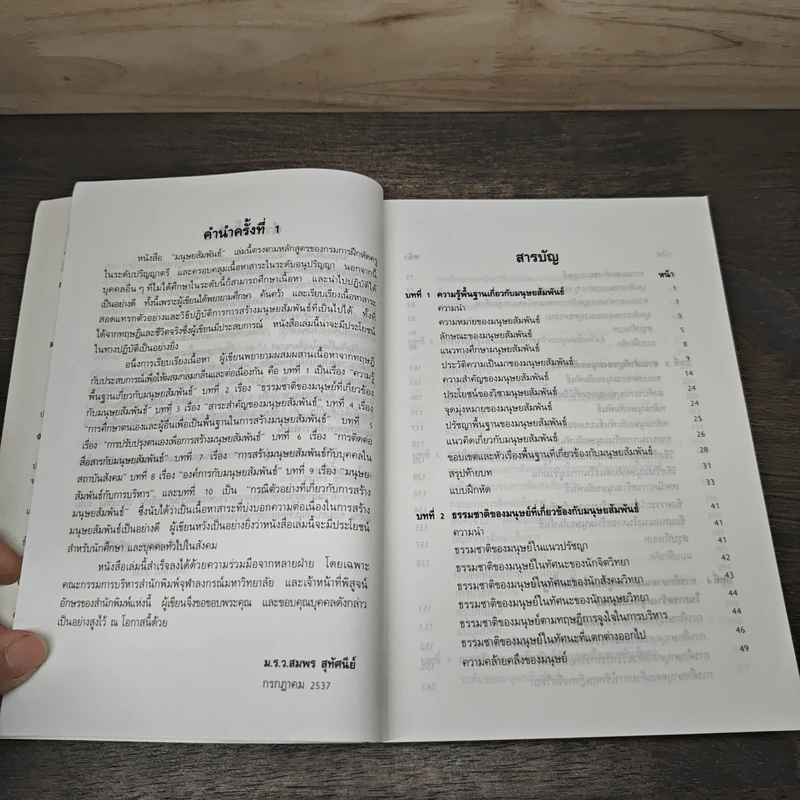 คำนำครั้งที่ 1
หนังสือ "มนุษยสัมพันธ์" เล่มนี้ตรงตามหลักสูตรของกรมการฝึกหัดครู
ในระดับปริญญาตรี และครอบคลุมเนื้อหาสาระในระดับอนุปริญญา นอกจากนี้
บุคคลอื่น ๆ ที่ไม่ได้ศึกษาในระดับนี้ก็สามารถศึกษาเนื้อหา และนำไปปฏิบัติได้
เป็นอย่างดี ทั้งนี้เพราะผู้เขียนได้พยายามศึกษา ค้นคว้า และเรียบเรียงเนื้อหาสาระ
สอดแทรกตัวอย่างและวิธีปฏิบัติการการสร้างมนุษยสัมพันธ์ที่เป็นไปได้ ทั้งที่
ได้จากทฤษฎีและชีวิตจริงซึ่งผู้เขียนมีประสบการณ์ หนังสือเล่มนี้น่าจะมีประโยชน์
ในทางปฏิบัติเป็นอย่างยิ่ง
อนึ่งการเรียบเรียงเนื้อหา ผู้เขียนพยายามผสมผสานเนื้อหาจากทฤษฎี
กับประสบการณ์เพื่อให้ผสมกลมกลืนและต่อเนื่องกัน คือ บทที่ 1 เป็นเรื่อง "ความรู้
พื้นฐานเกี่ยวกับมนุษยสัมพันธ์" บทที่ 2 เรื่อง "ธรรมชาติของมนุษย์ที่เกี่ยวข้อง
กับมนุษยสัมพันธ์" บทที่ 3 เรื่อง "สาระสำคัญของมนุษยสัมพันธ์" บทที่ 4 เรื่อง
"การศึกษาตนเองและผู้อื่นเพื่อเป็นพื้นฐานในการสร้างมนุษยสัมพันธ์" บทที่ 5
เรื่อง "การปรับปรุงตนเองเพื่อการสร้างมนุษยสัมพันธ์" บทที่ 6 เรื่อง "การติดต่อ
สื่อสารกับมนุษยสัมพันธ์" บทที่ 7 เรื่อง "การสร้างมนุษยสัมพันธ์กับบุคคลใน
สถาบันสังคม" บทที่ 8 เรื่อง "องค์การกับมนุษยสัมพันธ์" บทที่ 9 เรื่อง "มนุษย-
สัมพันธ์กับการบริหาร" และบทที่ 10 เป็น "กรณีตัวอย่างที่เกี่ยวกับการสร้าง
มนุษยสัมพันธ์" ซึ่งนับได้ว่าเป็นเนื้อหาสาระที่บ่งบอกความต่อเนื่องในการสร้าง
มนุษยสัมพันธ์เป็นอย่างดี ผู้เขียนหวังเป็นอย่างยิ่งว่าหนังสือเล่มนี้จะมีประโยชน์
สำหรับนักศึกษา และบุคคลทั่วไปในสังคม
หนังสือเล่มนี้สำเร็จลงได้ด้วยความร่วมมือจากหลายฝ่าย โดยเฉพาะ
คณะกรรมการบริหารสำนักพิมพ์จุฬาลงกรณ์มหาวิทยาลัย และเจ้าหน้าที่พิสูจน์
อักษรของสำนักพิมพ์แห่งนี้ ผู้เขียนจึงขอขอบพระคุณ และขอบคุณบุคคลดังกล่าว
เป็นอย่างสูงไว้ ณ โอกาสนี้ด้วย
ม.ร.ว.สมพร สุทัศนีย์
กรกฎาคม 2537
สารบัญ
หน้า
บทที่ 1 ความรู้พื้นฐานเกี่ยวกับมนุษยสัมพันธ์ 1
ความนำ 1
ความหมายของมนุษยสัมพันธ์ 3
ลักษณะของมนุษยสัมพันธ์ 5
แนวทางศึกษามนุษยสัมพันธ์ 8
ประวัติความเป็นมาของมนุษยสัมพันธ์ 9
ความสำคัญของมนุษยสัมพันธ์ 14
ประโยชน์ของวิชามนุษยสัมพันธ์ 24
จุดมุ่งหมายของมนุษยสัมพันธ์ 24
ปรัชญาพื้นฐานของมนุษยสัมพันธ์ 25
แนวคิดเกี่ยวกับมนุษยสัมพันธ์ 26
ขอบเขตและหัวเรื่องพื้นฐานที่เกี่ยวข้องกับมนุษยสัมพันธ์ 28
สรุปท้ายบท 31
แบบฝึกหัด 33
บทที่ 2 ธรรมชาติของมนุษย์ที่เกี่ยวข้องกับมนุษยสัมพันธ์ 41
ความนำ 41
ธรรมชาติของมนุษย์ในแนวปรัชญา 42
ธรรมชาติของมนุษย์ในทัศนะของนักจิตวิทยา 43
ธรรมชาติของมนุษย์ในทัศนะของนักสังคมวิทยา 44
ธรรมชาติของมนุษย์ในทัศนะของนักมนุษยวิทยา 44
ธรรมชาติของมนุษย์ตามทฤษฎีการจูงใจในการบริหาร 46
ธรรมชาติของมนุษย์ในทัศนะที่แตกต่างออกไป 49
ความคล้ายคลึงของมนุษย์